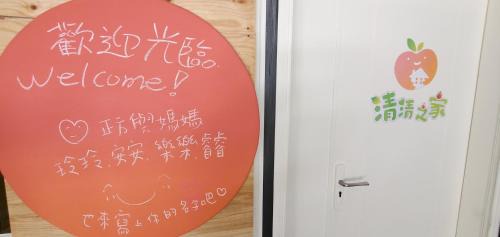 歡迎光臨
Welcome!
正方與媽媽
玲玲、安安、樂樂、睿睿
也來寫上你的名字吧
清清之家